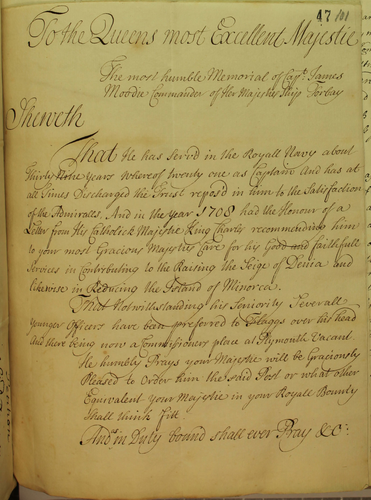 47 101
To the Queens most Excellent Majestie
The most humble Memorial of Capt. James
Moodie Commander of Her Majesties Ship Torbay
Sheweth
That He has Serv'd in the Royall Navy about
Thirty Years Whereof twenty one as Captain And has at
all Times Discharged the Trust repos'd in him to the Satisfaction
of the Admiralls. And in the Year 1708 had the Honour of a
Letter from His Catholick Majestie King Charles recommending him
to your most Gracious Majesties Care for his Good and faithfull
Services in Contributing to the Raising the Seige of Denia and
likewise in Reducing the Island of Minorca.
That Notwithstanding his Seniority Severall
Younger Officers have been preferred to Flaggs over his head
And there being now a Commissioners place at Plymouth Vacant
He humbly Prays your Majestie will be Graciously
Pleased to Order him the said Post or what other
Equivalent your Majestie in your Royall Bounty
Shall think fitt
And in Duty bound shall ever Pray &c: